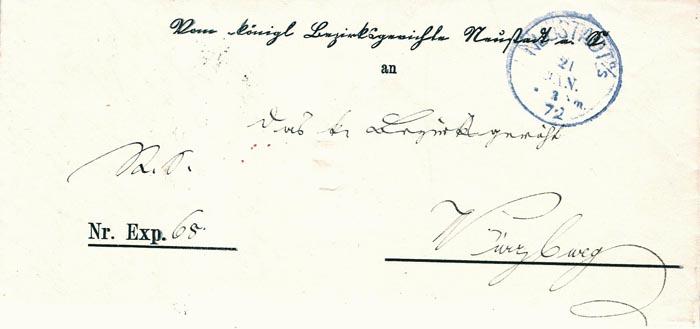 Vom königl Bezirksgerichte Neustadt a. S
an
Das k. Bezirksgericht
R. S.
Nr. Exp. 68.
Würzburg
NEUSTADT a/S
21
JAN.
72